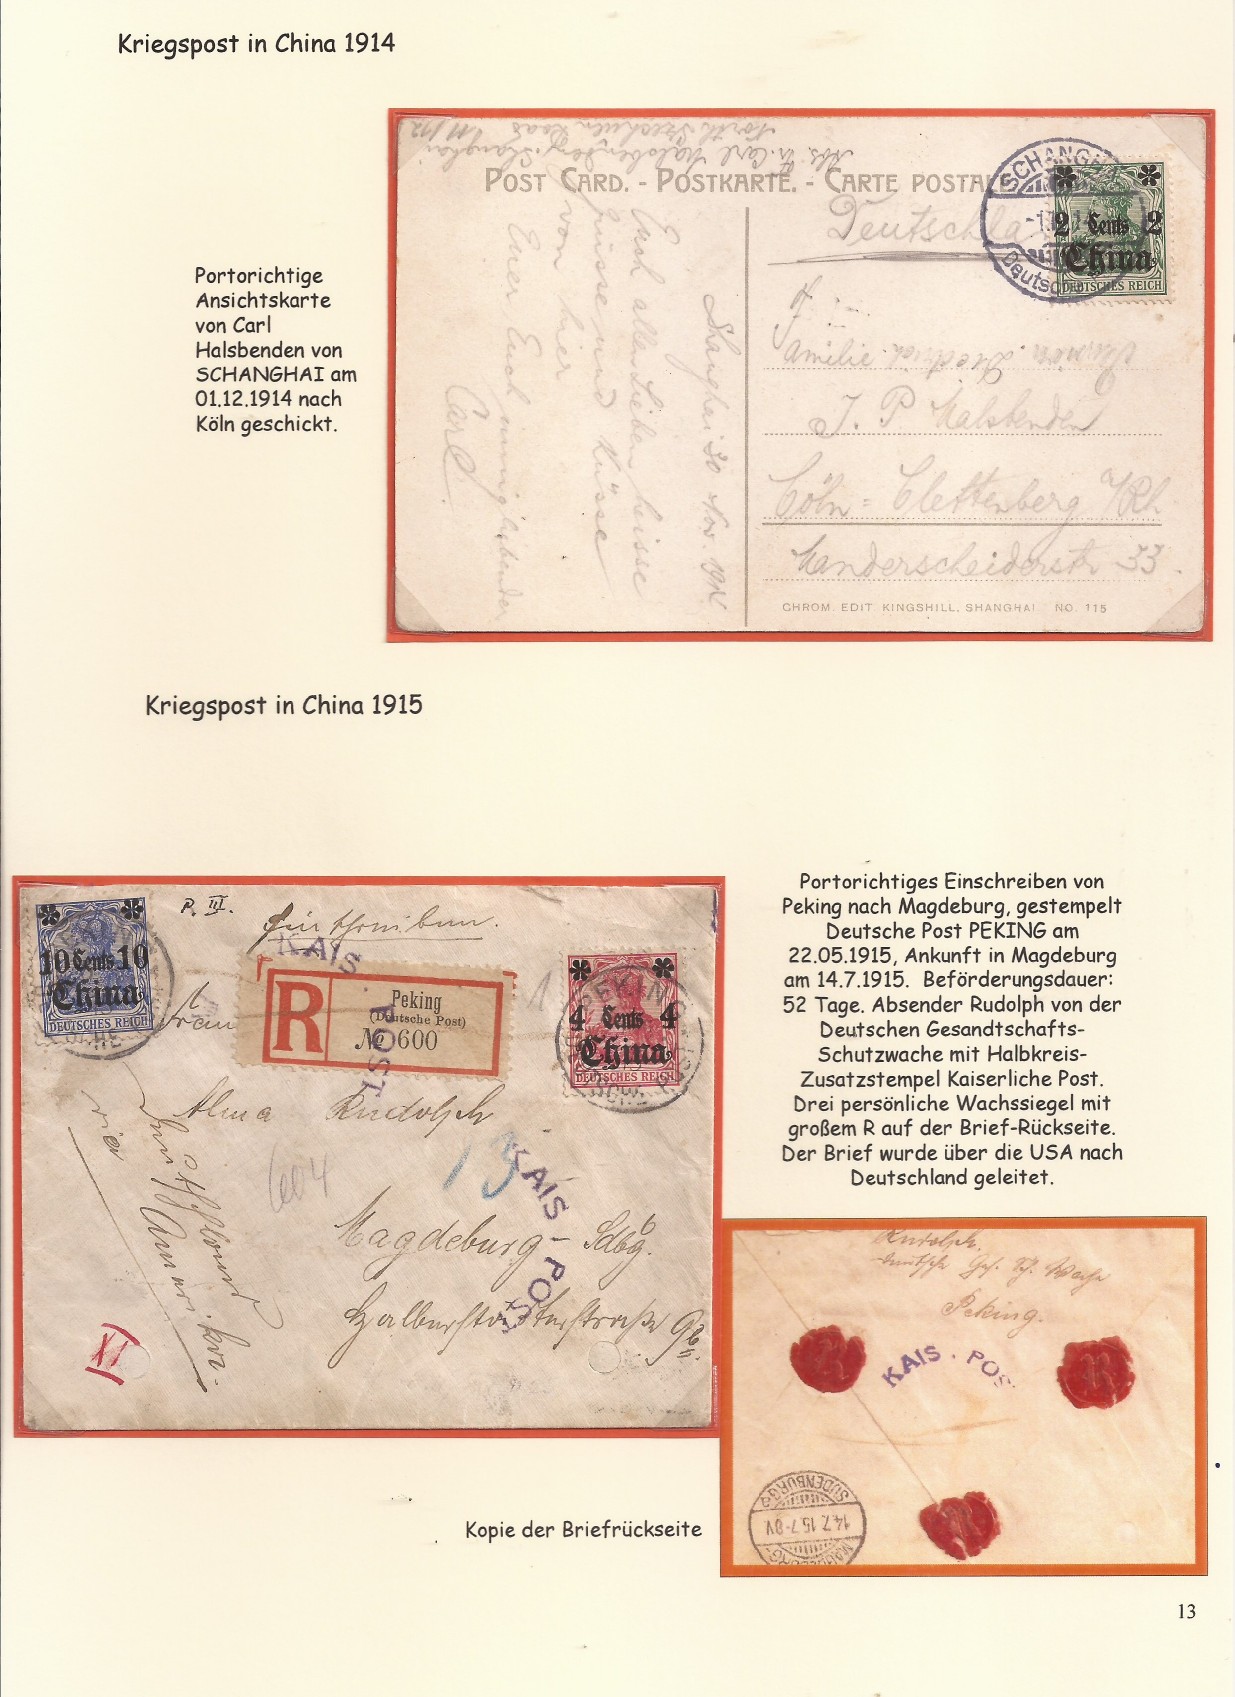 Kriegspost in China 1914
Portorichtige
Ansichtskarte
von Carl
Halsbenden von
SCHANGHAI am
01.12.1914 nach
Köln geschickt.
Abs. Carl Halsbenden, Shanghai
North Szechuen Road
POST CARD. - POSTKARTE. - CARTE POSTALE
SCHANGHAI
Deutsche
2 Cents 2
China
DEUTSCHES REICH
Deutschla
Shanghai 30 Nov. 1914
Euch allen Lieben heisse
Grüsse und Küsse
von hier
Euer Euch innigliebender
Carl.
Familie
J. P. Halsbenden
Cöln = Clettenberg a/Rh
Manderscheiderstr. 33.
CHROM. EDIT KINGSHILL, SHANGHAI NO. 115
Kriegspost in China 1915
Portorichtiges Einschreiben von
Peking nach Magdeburg, gestempelt
Deutsche Post PEKING am
22.05.1915, Ankunft in Magdeburg
am 14.7.1915. Beförderungsdauer:
52 Tage. Absender Rudolph von der
Deutschen Gesandtschafts-
Schutzwache mit Halbkreis-
Zusatzstempel Kaiserliche Post.
Drei persönliche Wachssiegel mit
großem R auf der Brief-Rückseite.
Der Brief wurde über die USA nach
Deutschland geleitet.
10 Cents 10
China
DEUTSCHES REICH
P. III.
Einschreiben.
KAIS. POST
R
Peking
(Deutsche Post)
No 600
PEKING
4 Cents 4
China
DEUTSCHES REICH
Frau
Alma Rudolph
604
13
KAIS - POST
Magdeburg - Sdbg.
Halberstädterstraße
via
XI
Rudolph.
Deutsche Ges. Sch. Wache
Peking.
KAIS. POS
SUDENBURG
14.7.15.7-8V
MAGDEBURG-
Kopie der Briefrückseite
13